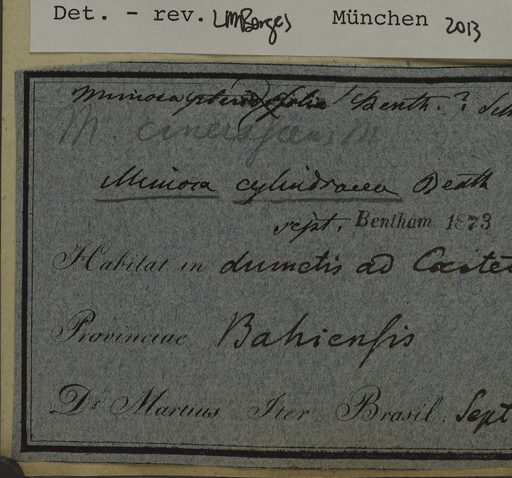 Det. - rev. LMBorges München 2013
Mimosa Benth. ?
M. cinerascens m
Mimosa cylindracea Benth
sept. Bentham 1873
Habitat in dumetis ad
Provinciae Bahiensis
Dr Martius Iter Brasil. Sept